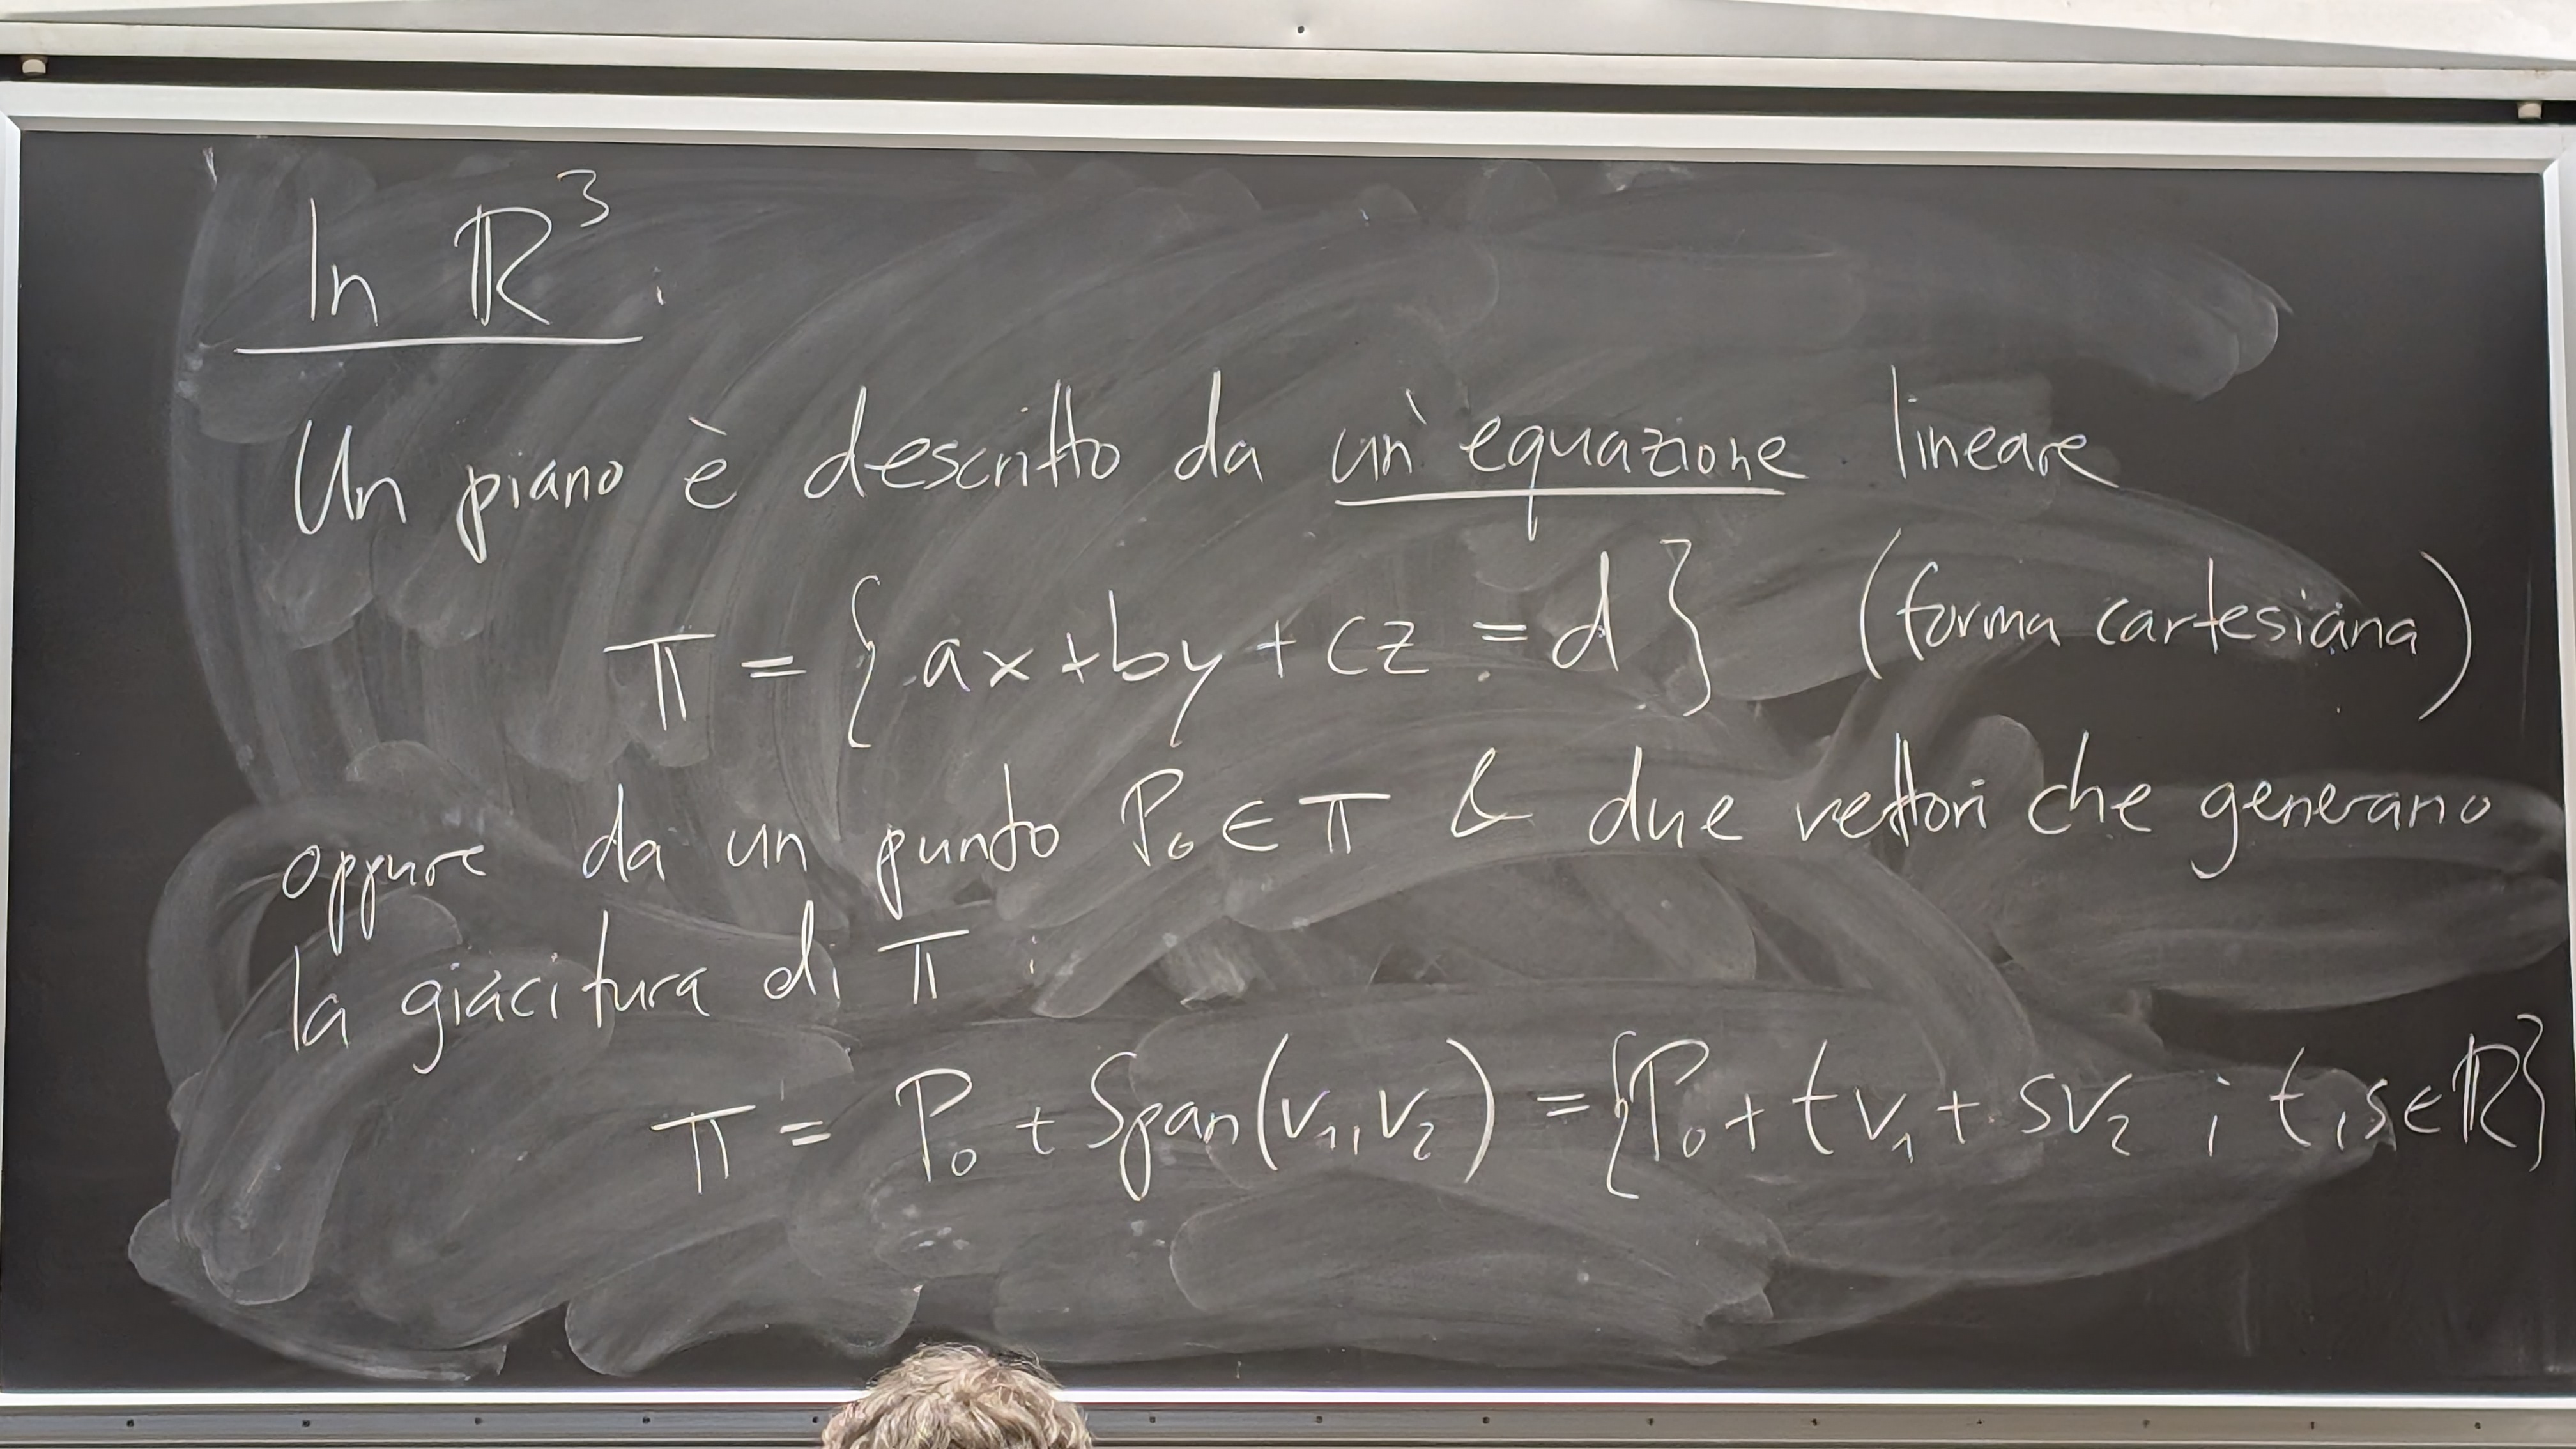 In ℝ³:
Un piano è descritto da un'equazione lineare
π = {ax+by+cz = d} (forma cartesiana)
oppure da un punto P₀ ∈ π & due vettori che generano
la giacitura di π :
π = P₀ + Span(v₁,v₂) = {P₀ + tv₁ + sv₂ ; t,s∈ℝ}